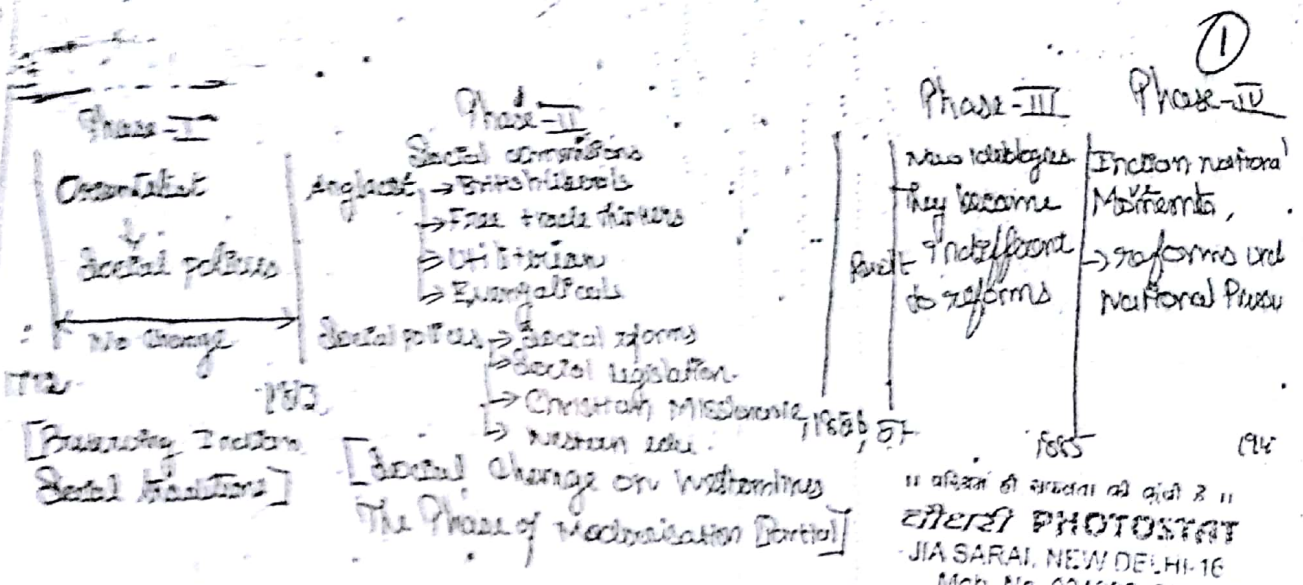 ①
Phase-I
Orientalist
↓
Social policies
No Change
1772
1813
[Preserving Indian
Social traditions]
Phase-II
Social
Anglacist → British liberals
→ Free trade thinkers
→ Utilitarian
→ Evangalicals
Social policies → Social reforms
→ Social legislation
→ Christian Missionarie
→ Western edu.
[Social Change on Westernlines
The Phase of Modernisation [Partial]
1856, 57
Phase-III
New Ideologies
They became
Indefferent
to reforms
1885
Phase-IV
Indian national
Moments,
→ reforms und
National Pressu
194
" परिश्रम ही सफलता की कुंजी है "
PHOTOSTAT
JIA SARAI, NEW DELHI-16
Mob. No.